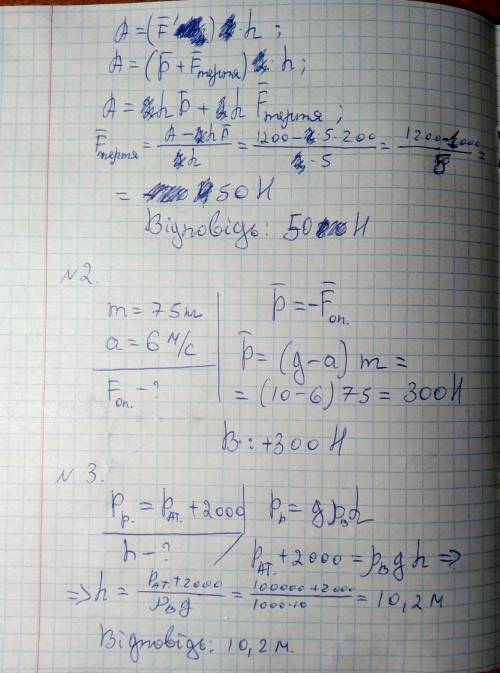 A = (F̄) · h ;
A = (p̄ + F̄тертя) · h;
A = h p̄ + h F̄тертя ;
F̄тертя = (A − h p̄)/h = (1200 − 5·200)/5 = (1200 − 1000)/5 =
= 50 Н
Відповідь: 50 Н
№2.
m = 75м   p̄ = −F̄оп.
a = 6 м/с   p̄ = (g−a) m =
Fоп. − ?   = (10−6) 75 = 300Н
В: +300 Н
№3.
Pр. = Pат. + 2000   Pр = g ρв h
h − ?   Pат. + 2000 = ρв g h ⇒
⇒ h = (Pат + 2000)/(ρв g) = (100000 + 2000)/(1000·10) = 10,2 м
Відповідь: 10,2 м.